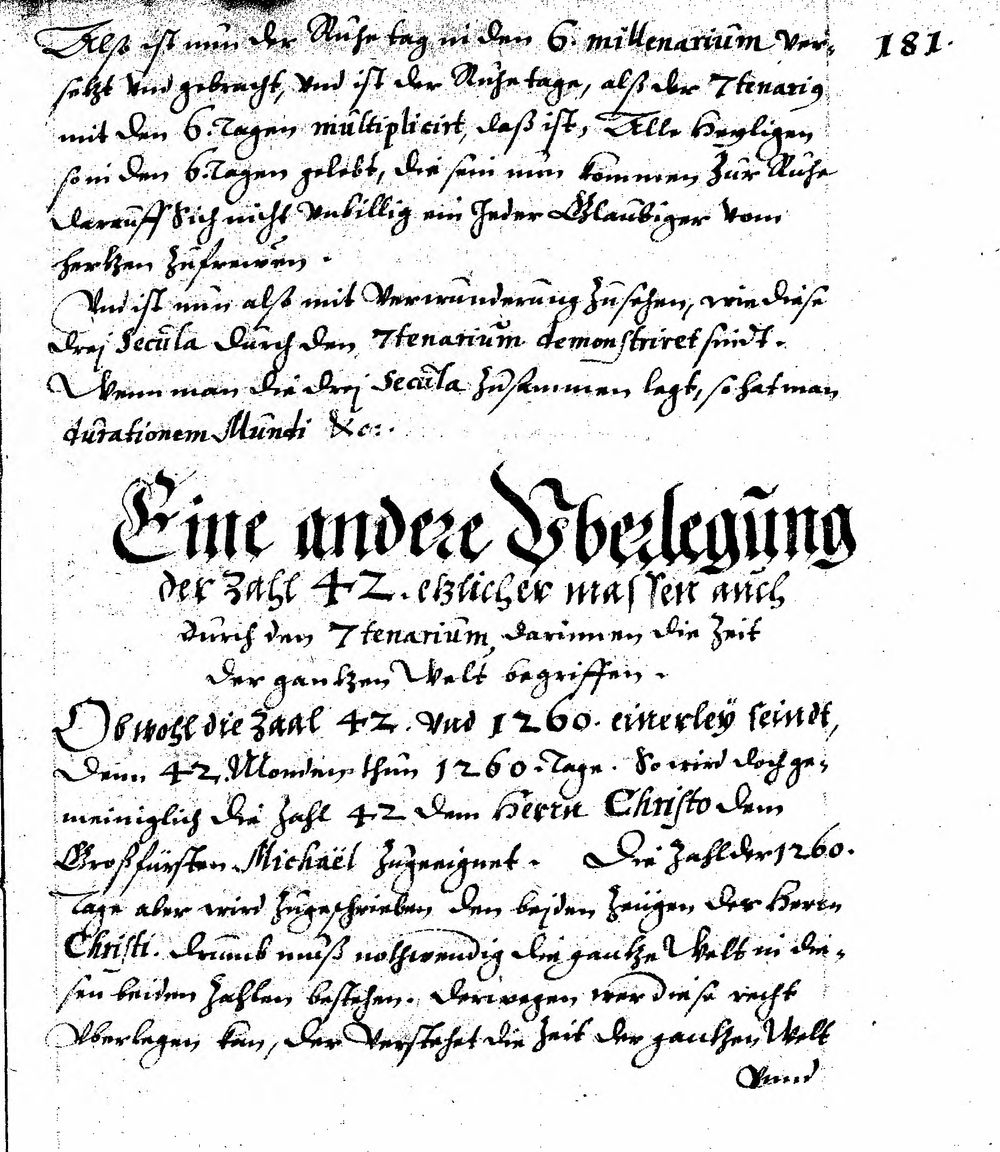 181.
Alß ist nun der Ruhe tag in den 6. millenarium ver-
setzt vnd gebracht, vnd ist der Ruhe tage, alß der 7tenariq
mit den 6. Tagen multiplicirt, daß ist, Alle Heyligen
so in den 6. Tagen gelebt, die sein nun kommen zur Ruhe
darauff sich nicht vnbillig ein Jeder Glaubiger vom
hertzen zufrewen.
Vnd ist nun alß mit verwunderung zusehen, wie diese
drej Secula durch den 7tenarium demonstriret sindt.
Wenn man die drej Secula zusammen legt, so hat man
durationem Mundi &c:.
Eine andere Vberlegung
der Zahl 42. etzlicher massen auch
durch den 7tenarium, darinnen die Zeit
der gantzen Welt begriffen.
Ob wohl die Zaal 42. vnd 1260. einerleÿ seindt,
Denn 42. Monden thun 1260. Tage. So wird doch ge-
meiniglich die Zahl 42 dem Herrn Christo dem
Großfürsten Michaël zugeeignet. Die Zahl der 1260.
Tage aber wird zugeschrieben den bejden Zeugen des Herrn
Christi. drumb muß nothwendig die gantze Welt in die-
sen beiden Zahlen bestehen. derwegen wer diese recht
vberlegen kan, der verstehet die Zeit der gantzen Welt
Vnnd